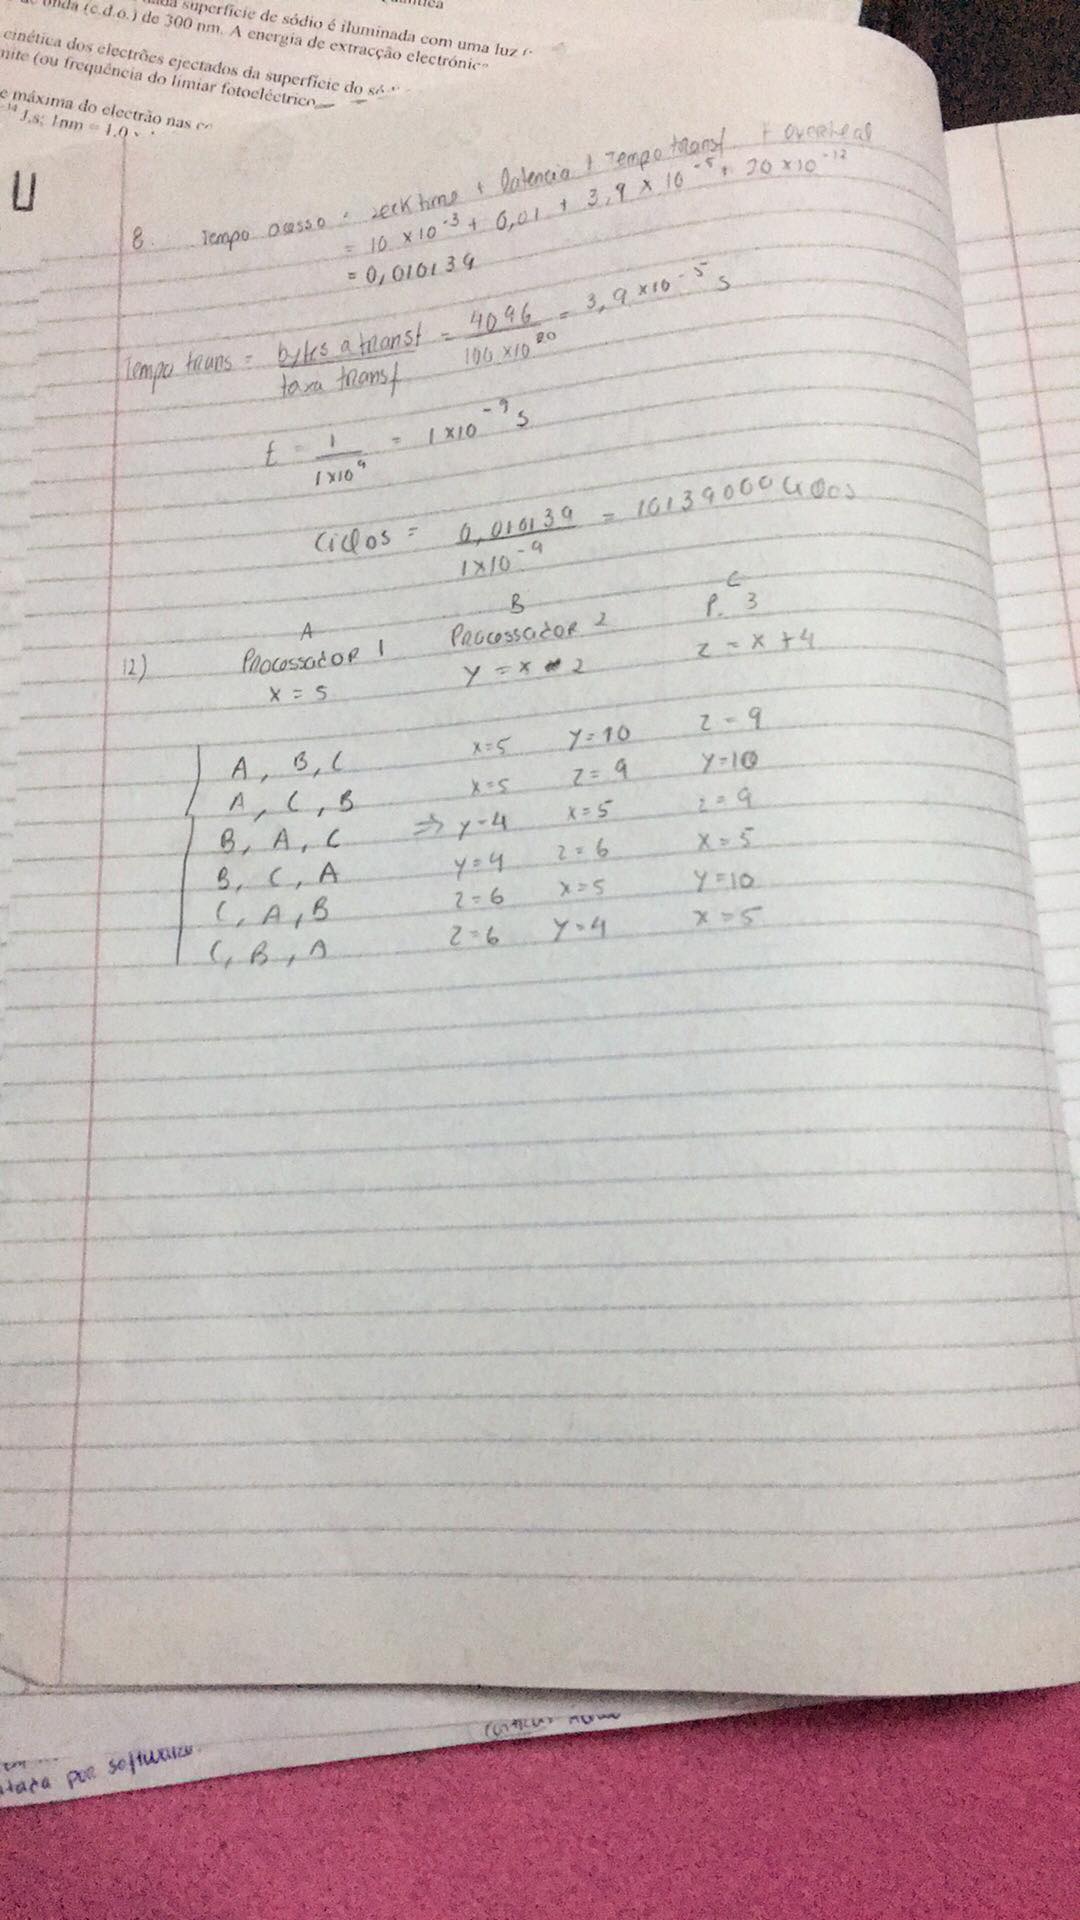 superfície de sódio é iluminada com uma luz
onda (c.d.o.) de 300 nm. A energia de extracção electrónic
cinética dos electrões ejectados da superfície do só
mite (ou frequência do limiar fotoeléctrico
e máxima do electrão nas
-34 J.s; 1nm = 1.0
U
8. Tempo acesso = seek time + latencia + Tempo transf. + overheal
= 10 × 10^-3 + 0,01 + 3,9 × 10^-5 + 20 × 10^-12
= 0,010139
Tempo trans = bytes a transf / taxa transf = 4096 / 100 × 10^20 = 3,9 × 10^-5 s
t = 1 / 1×10^9 = 1 × 10^-9 s
Ciclos = 0,010139 / 1×10^-9 = 10139000 ciclos
A B C
12) Processador 1 Processador 2 P. 3
x = 5 y = x * 2 z = x + 4
A, B, C x=5 y=10 z=9
A, C, B x=5 z=9 y=10
B, A, C => y=4 x=5 z=9
B, C, A y=4 z=6 x=5
C, A, B z=6 x=5 y=10
C, B, A z=6 y=4 x=5
por software.